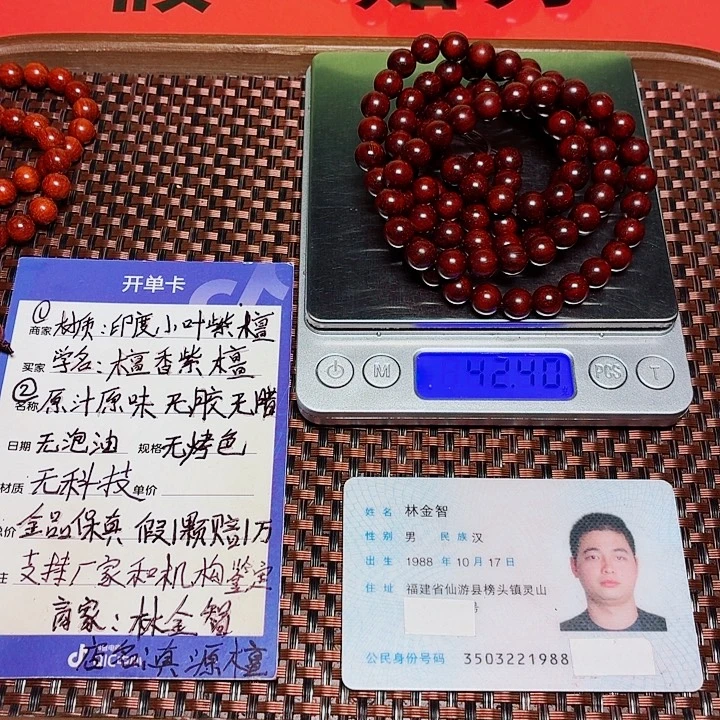 开单卡
① 商家 材质：印度小叶紫檀
买家 学名：檀香紫檀
② 名称 原汁原味 无胶无腊
日期 无泡油 规格 无烤色
材质 无科技 单价
全品保真 假1颗赔1万
支持厂家和机构鉴定
商家：林金智
店名：滇源檀
M
42.40
PCS
T
姓名 林金智
性别 男 民族 汉
出生 1988 年 10 月 17 日
住址 福建省仙游县榜头镇灵山
号
公民身份号码 3503221988